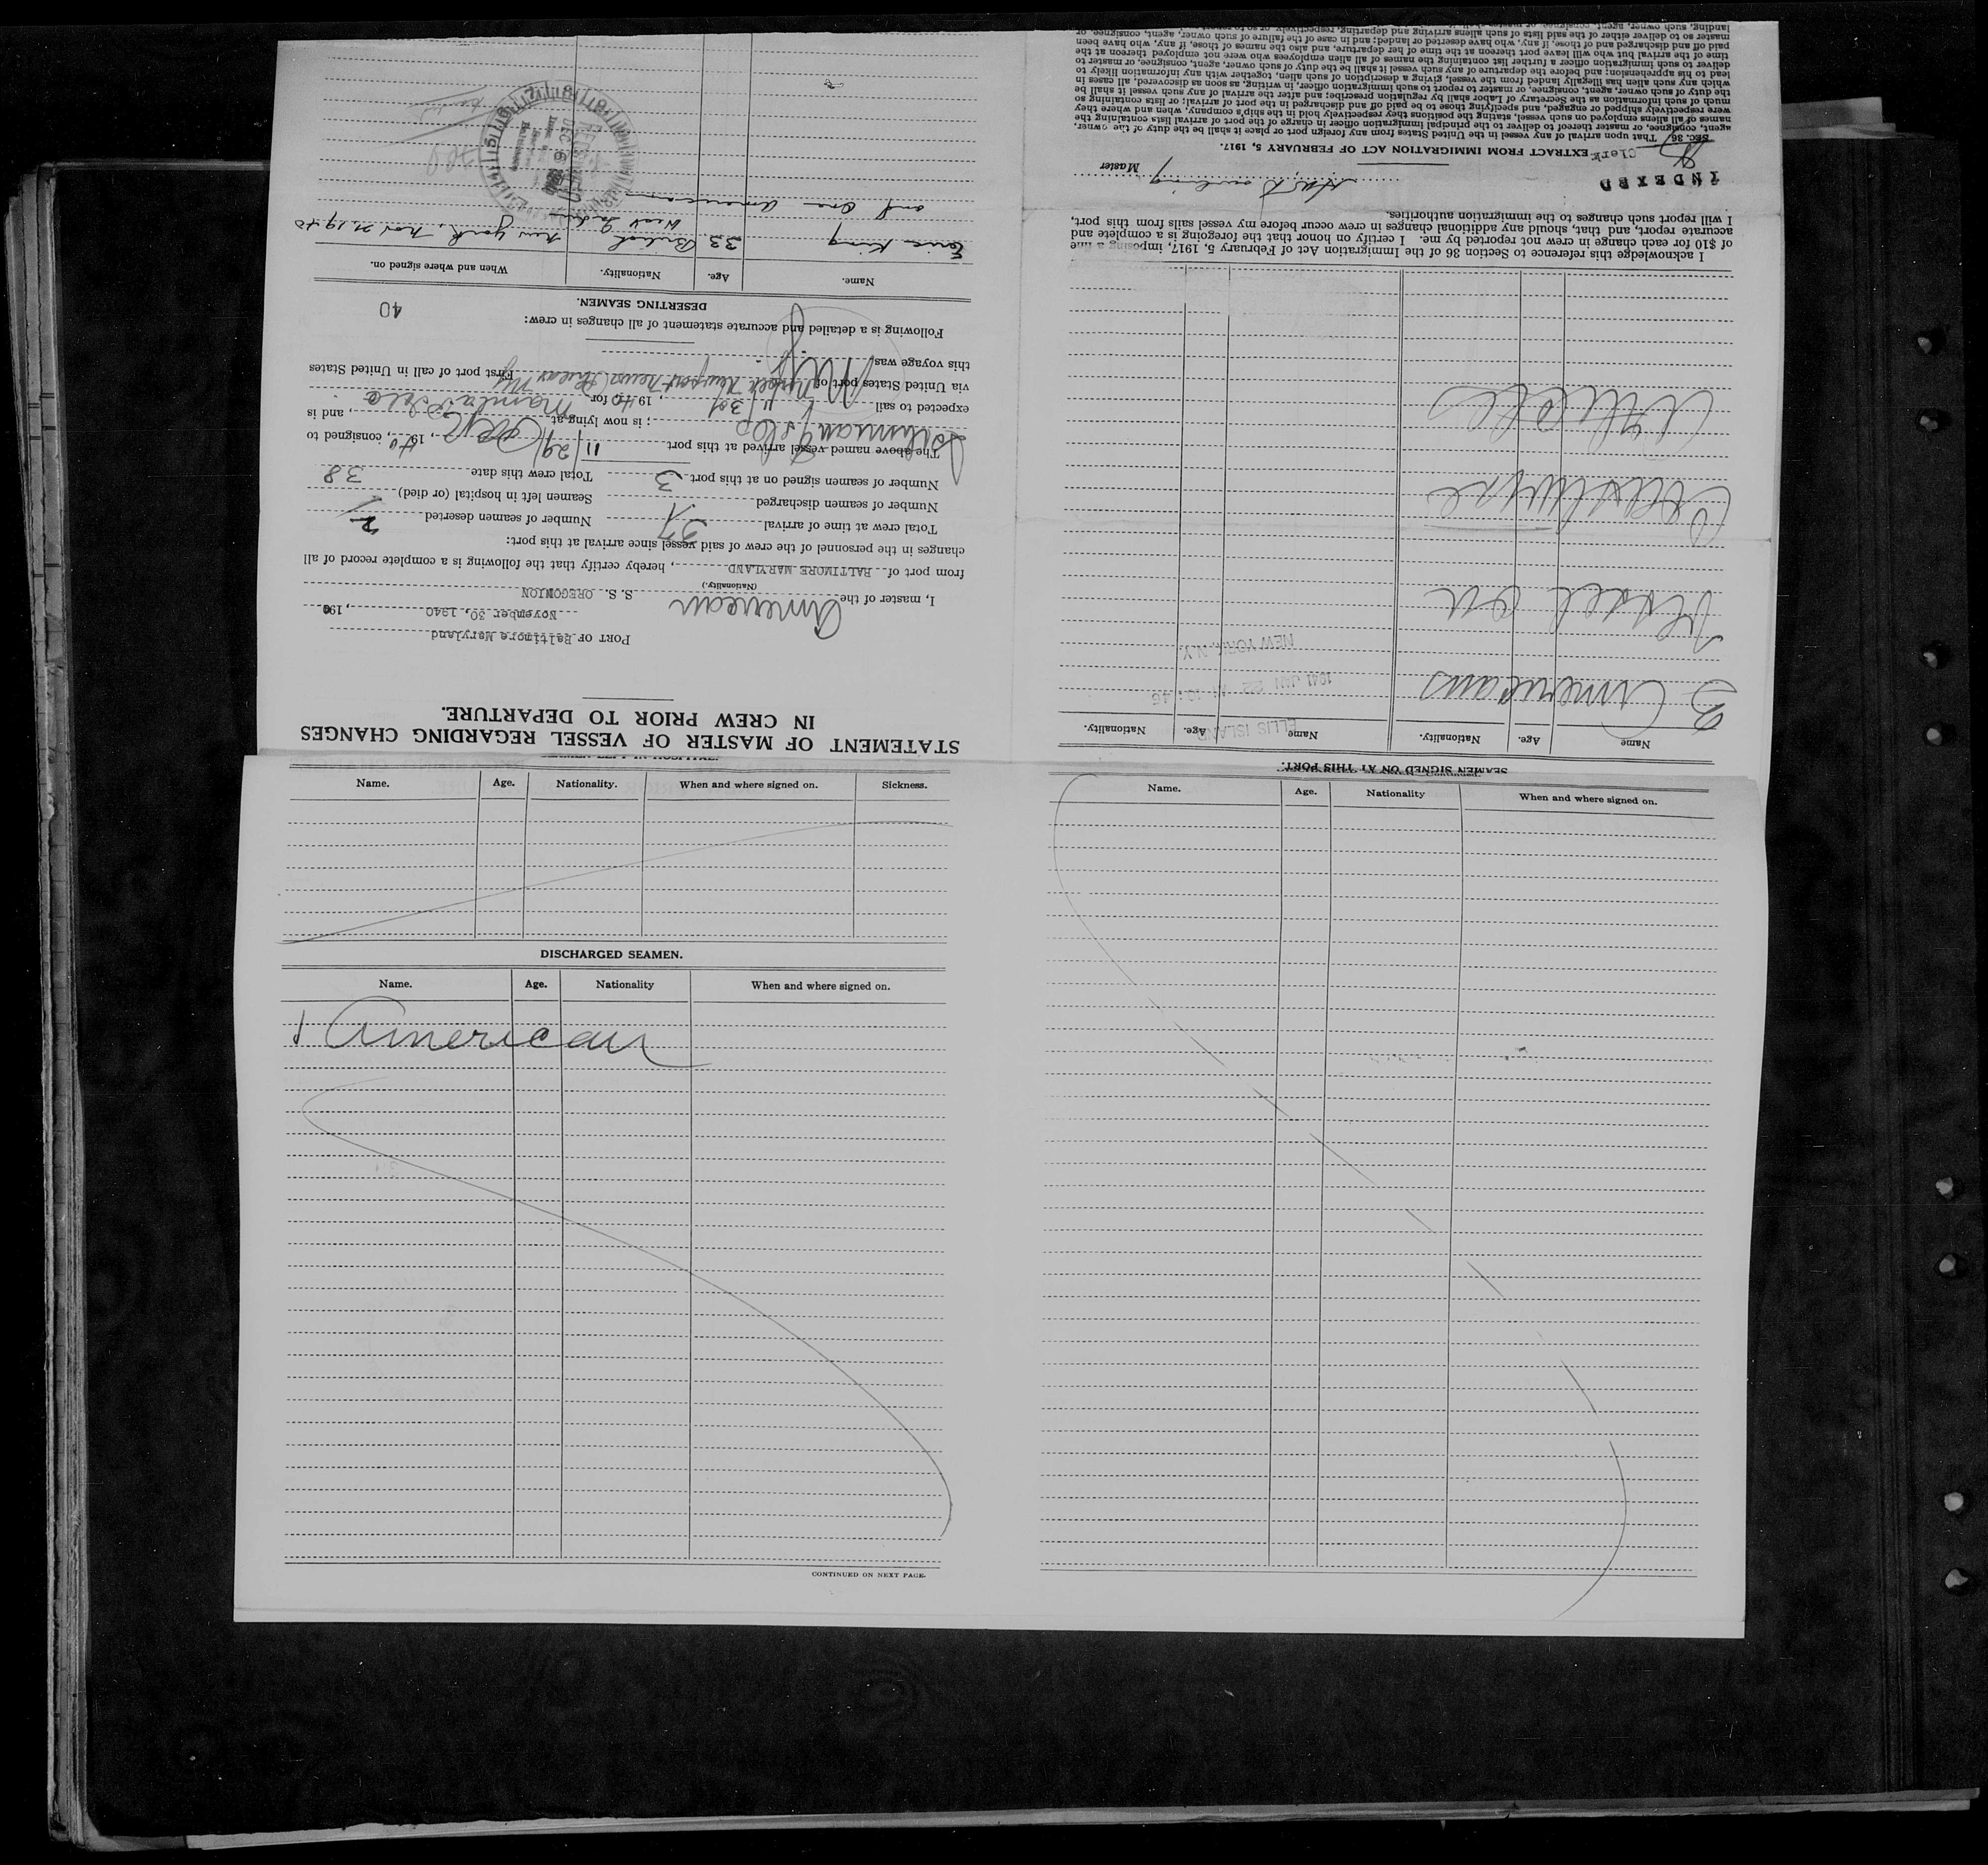 STATEMENT OF MASTER OF VESSEL REGARDING CHANGES
IN CREW PRIOR TO DEPARTURE.
PORT OF Baltimore Maryland
November 30, 1940, 19
I, master of the American S. S. OREGONION
(Nationality.)
from port of BALTIMORE MARYLAND, hereby certify that the following is a complete record of all
changes in the personnel of the crew of said vessel since arrival at this port:
Total crew at time of arrival 37 Number of seamen deserted 2
Number of seamen discharged 1 Seamen left in hospital (or died)
Number of seamen signed on at this port 3 Total crew this date 38
The above named vessel arrived at this port 11/29, 1940, consigned to
; is now lying at, and is
expected to sail 11/30, 1940, for Manila
via United States port of Newport News First port of call in United States
this voyage was NY
Following is a detailed and accurate statement of all changes in crew:
40
DESERTING SEAMEN.
Name. Age. Nationality. When and where signed on.
Eric King 33 British New York, Nov 21, 1940
West Indies
and One American
SEAMEN SIGNED ON AT THIS PORT.
Name Age. Nationality. Name Age. Nationality.
3 Americans
ELLIS ISLAND
1941 JAN 22 10:46
NEW YORK, N.Y.
Vessel on
Coastwise
Articles
I acknowledge this reference to Section 36 of the Immigration Act of February 5, 1917, imposing a fine
of $10 for each change in crew not reported by me. I certify on honor that the foregoing is a complete and
accurate report, and that, should any additional changes in crew occur before my vessel sails from this port,
I will report such changes to the immigration authorities.
INDEXED
Master
Clerk
EXTRACT FROM IMMIGRATION ACT OF FEBRUARY 5, 1917.
SEC. 36. That upon arrival of any vessel in the United States from any foreign port or place it shall be the duty of the owner,
agent, consignee, or master thereof to deliver to the principal immigration officer in charge of the port of arrival lists containing the
names of all aliens employed on such vessel, stating the positions they respectively hold in the ship's company, when and where they
were respectively shipped or engaged, and specifying those to be paid off and discharged in the port of arrival; or lists containing so
much of such information as the Secretary of Labor shall by regulation prescribe; and after the arrival of any such vessel it shall be
the duty of such owner, agent, consignee, or master to report to such immigration officer, in writing, as soon as discovered, all cases in
which any such alien has illegally landed from the vessel, giving a description of such alien, together with any information likely to
lead to his apprehension; and before the departure of any such vessel it shall be the duty of such owner, agent, consignee, or master to
deliver to such immigration officer a further list containing the names of all alien employees who were not employed thereon at the
time of the arrival but who will leave port thereon at the time of her departure, and also the names of those, if any, who have been
paid off and discharged and of those, if any, who have deserted or landed; and in case of the failure of such owner, agent, consignee, or
master so to deliver either of the said lists of such aliens arriving and departing, respectively, or so to
landing, such owner, agent, consignee, or master
Name. Age. Nationality. When and where signed on. Sickness.
DISCHARGED SEAMEN.
Name. Age. Nationality When and where signed on.
1 American
CONTINUED ON NEXT PAGE.
Name. Age. Nationality When and where signed on.